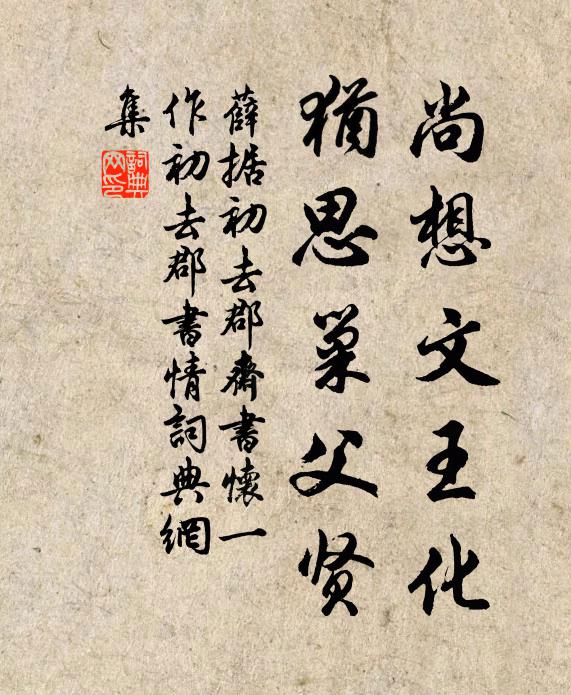 尚想文王化
犹思巢父贤
薛据初去郡齋書懷一
作初去郡書情詞典網
集
詞典网印